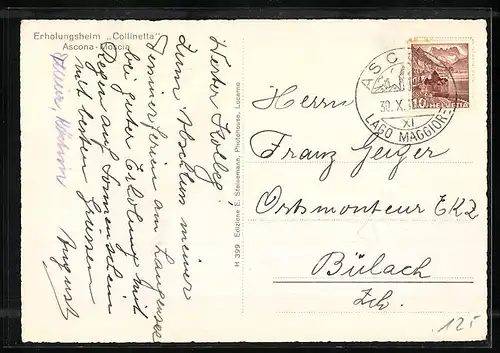 Erholungsheim „Collinetta"
Ascona-Moscia
Werter Kolleg!
Zum Abschluss meiner
Tessinerferien am Langensee
bei guter Erholung mit
Regen und Sonnenschein
mit besten Grüssen
August
H 399 Edizione E. Steinemann, Photohaus, Locarno
ASCONA
30.X.
XI
LAGO MAGGIORE
10 HELVETIA
Herrn
Franz Geiger
Ortsmonteur EKZ
Bülach
Zch.
125